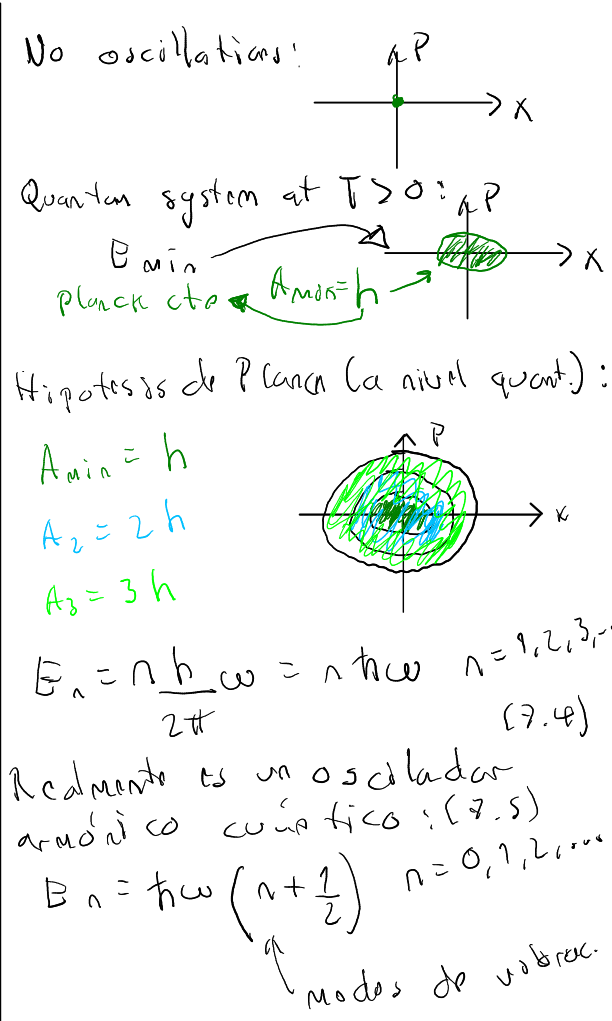 No oscillations:
P
X
Quantum system at T > 0:
P
E min
X
Planck cte
A min = h
Hipotesis de Planck (a nivel quant.):
P
A min = h
x
A₂ = 2h
A₃ = 3h
Eₙ = n h/2π ω = n ħω n = 1, 2, 3, ...
(7.4)
Realmente es un oscilador
armónico cuántico: (7.5)
Eₙ = ħω (n + 1/2) n = 0, 1, 2, ....
modos de vibrac.